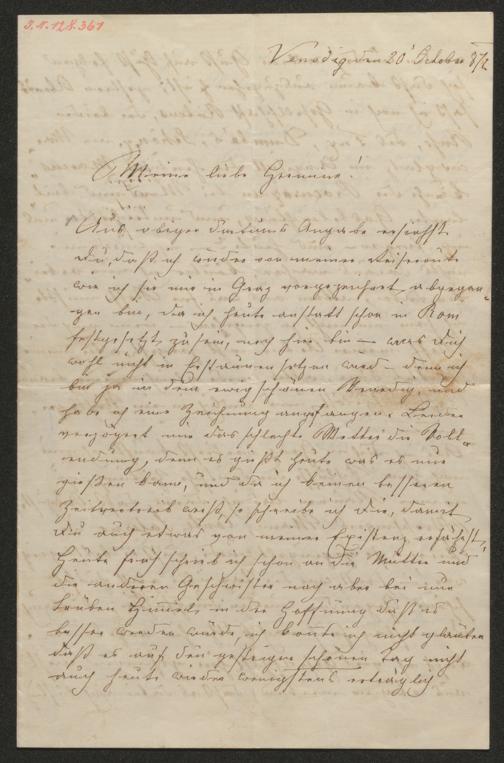 3.N.128.361
Venedig den 20' October 872
Meine liebe Hermine!
Aus obiger Datums Angabe ersiehst
Du, daß ich wieder von meiner Reiseroute
wie ich sie mir in Graz vorgezeichnet abgegan-
gen bin, da ich heute anstatt schon in Rom
festgesetzt zu sein, noch hier bin – was Dich
wohl nicht in Erstaunen setzen wird – denn ich
bin ja in dem ewig schönen Venedig, und
habe ich eine Zeichnung angefangen. Leider
verzögert mir das schlechte Wetter die Voll-
endung, denn es gießt heute was es nur
gießen kann, und da ich keinen besseren
Zeitvertreib weiß, so schreibe ich Dir, damit
Du auch etwas von meiner Existenz erfährst,
heute früh schrieb ich schon an die Mutter und
die anderen Geschwister noch aber bei nur
trüben Himmel in der Hoffnung daß es
besser werden würde, ich konnte ich nicht glauben
daß es auf den gestrigen schönen Tag nicht
auch heute wieder wenigstens erträglich